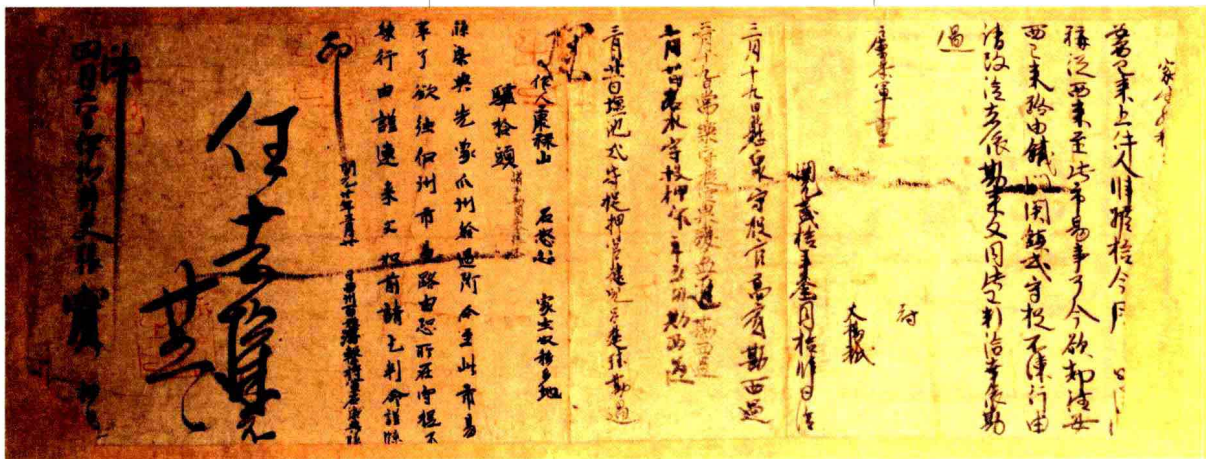 家生奴移
安西已来上件人肆驴拾今月 日得牒
稱從西来至此市易事了今欲却往安
西已来路由鐵門關鎮戍守捉不練行由
請改給者依勘来文同此已判給幸依勘
過
府
户曹参軍亶
史楊祇
開元貳拾年叁月拾肆日給
三月十九日懸泉守捉官高賓勘西過
三月十九日常樂守捉官果毅孟進勘西過
三月廿日苦水守捉押官年五用勘西過
三月廿一日鹽池戍守捉押官健兒吕楚珪勘過
作人康禄山 石怒忿 家生奴移多地
驢拾頭 沙州市勘同市令張休
牒染典先蒙瓜州給過所今至此市易
事了欲往伊州市易路由恐所在守捉不
練行由謹連来文如前請乞判命謹牒
印
開元廿年三月廿 日西州百姓游擊將軍石染典牒
任去
印
四月六日伊州刺史張賓 押過